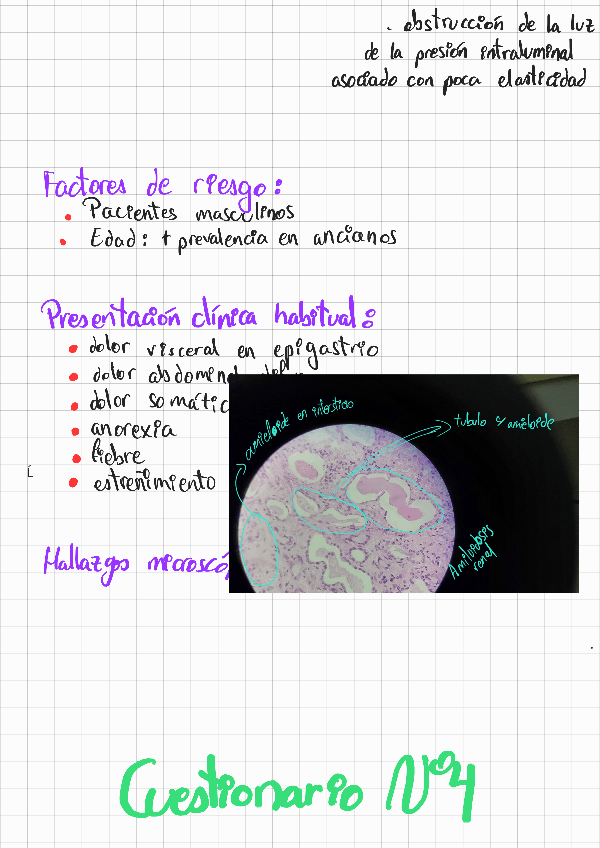 . obstrucción de la luz
de la presión intraluminal
asociado con poca elasticidad
Factores de riesgo:
• Pacientes masculinos
• Edad: + prevalencia en ancianos
Presentación clínica habitual:
• dolor visceral en epigastrio
• dolor abdominal
• dolor somátic
• anorexia
• fiebre
• estreñimiento
amieloide en intersticio
tubulo y amieloide
Amiloidosis
renal
Hallazgos microscó
Cuestionario Nº4